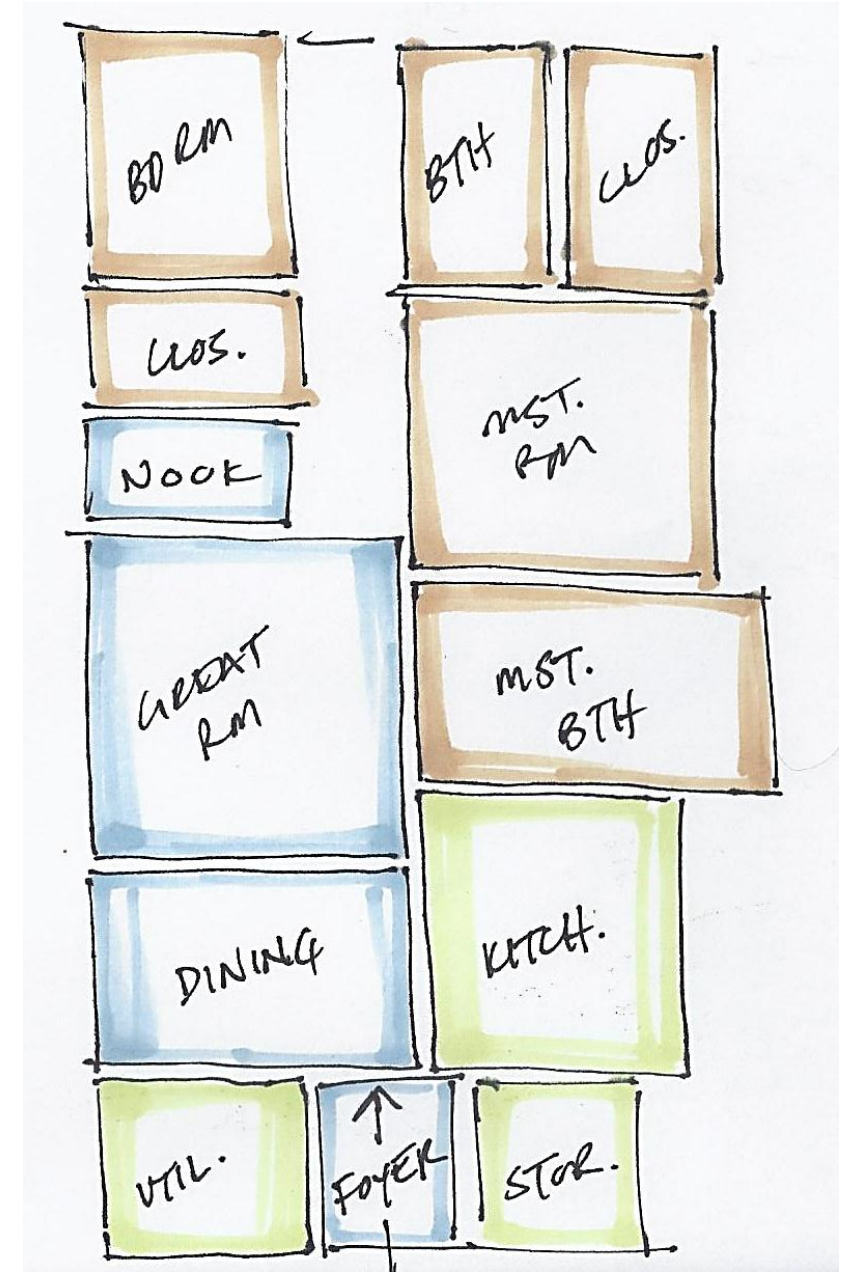 BD RM
BTH
CLOS.
CLOS.
NOOK
MST.
RM
GREAT
RM
MST.
BTH
DINING
KITCH.
UTIL.
FOYER
STOR.